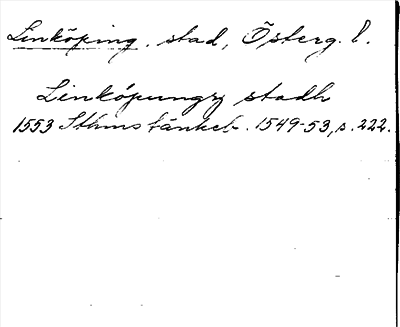 Linköping, stad, Österg. l.
Linköpungx stadh
1553 Sthms tänkeb. 1549-53, s. 222.